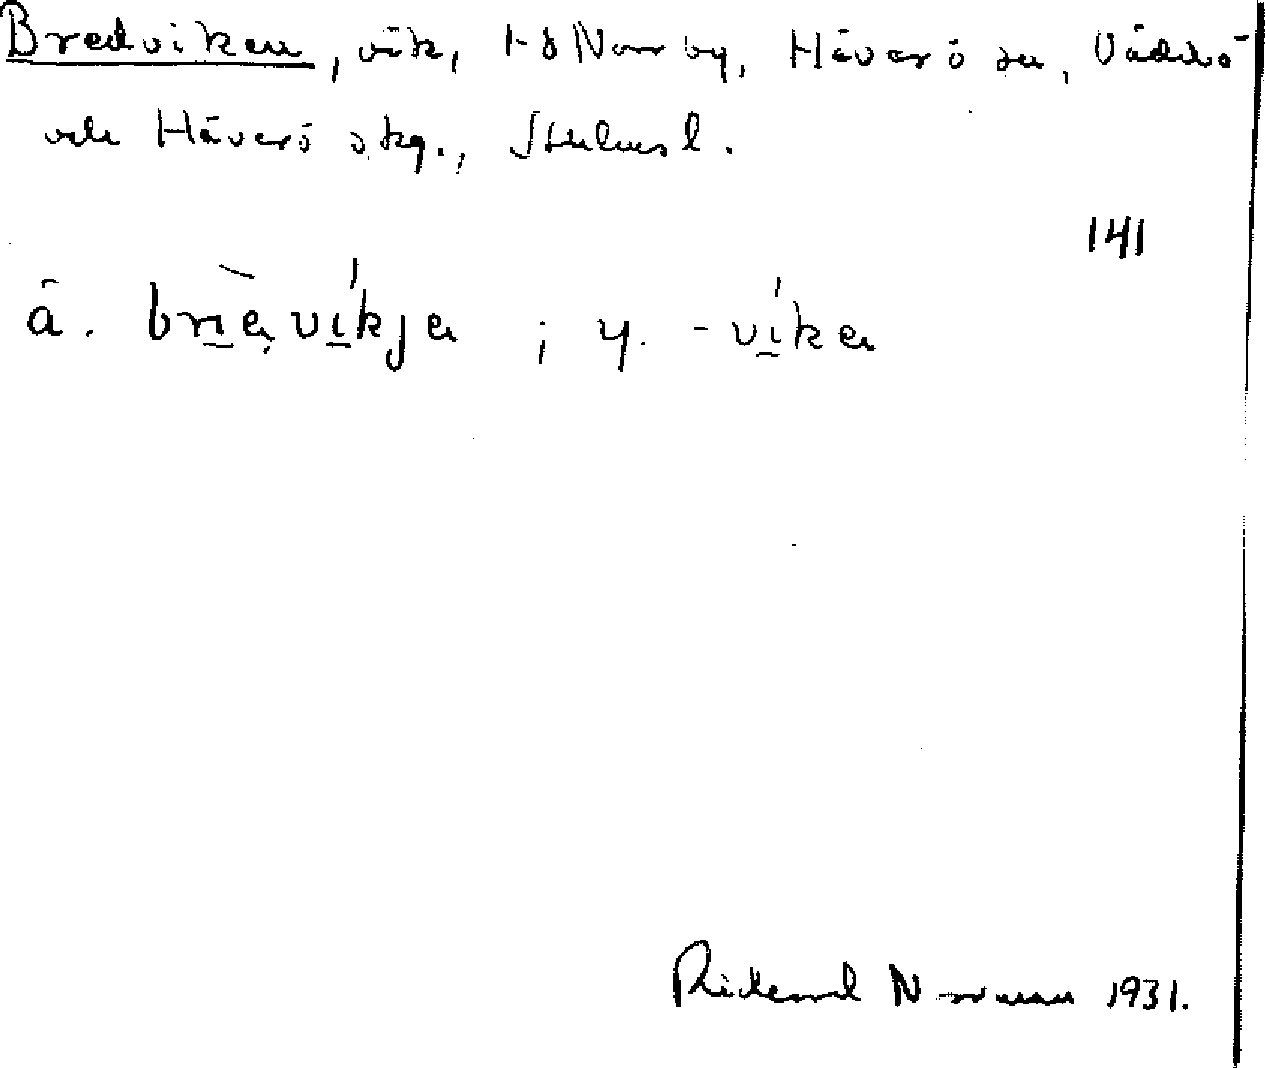 Bredviken, vik, Norrby, Häverö sn, Väddö
och Häverö skg., Stockhms l.
141
ä. brìe̱ vi̱kja ; y. -vi̱ka
Rickard Norman 1931.